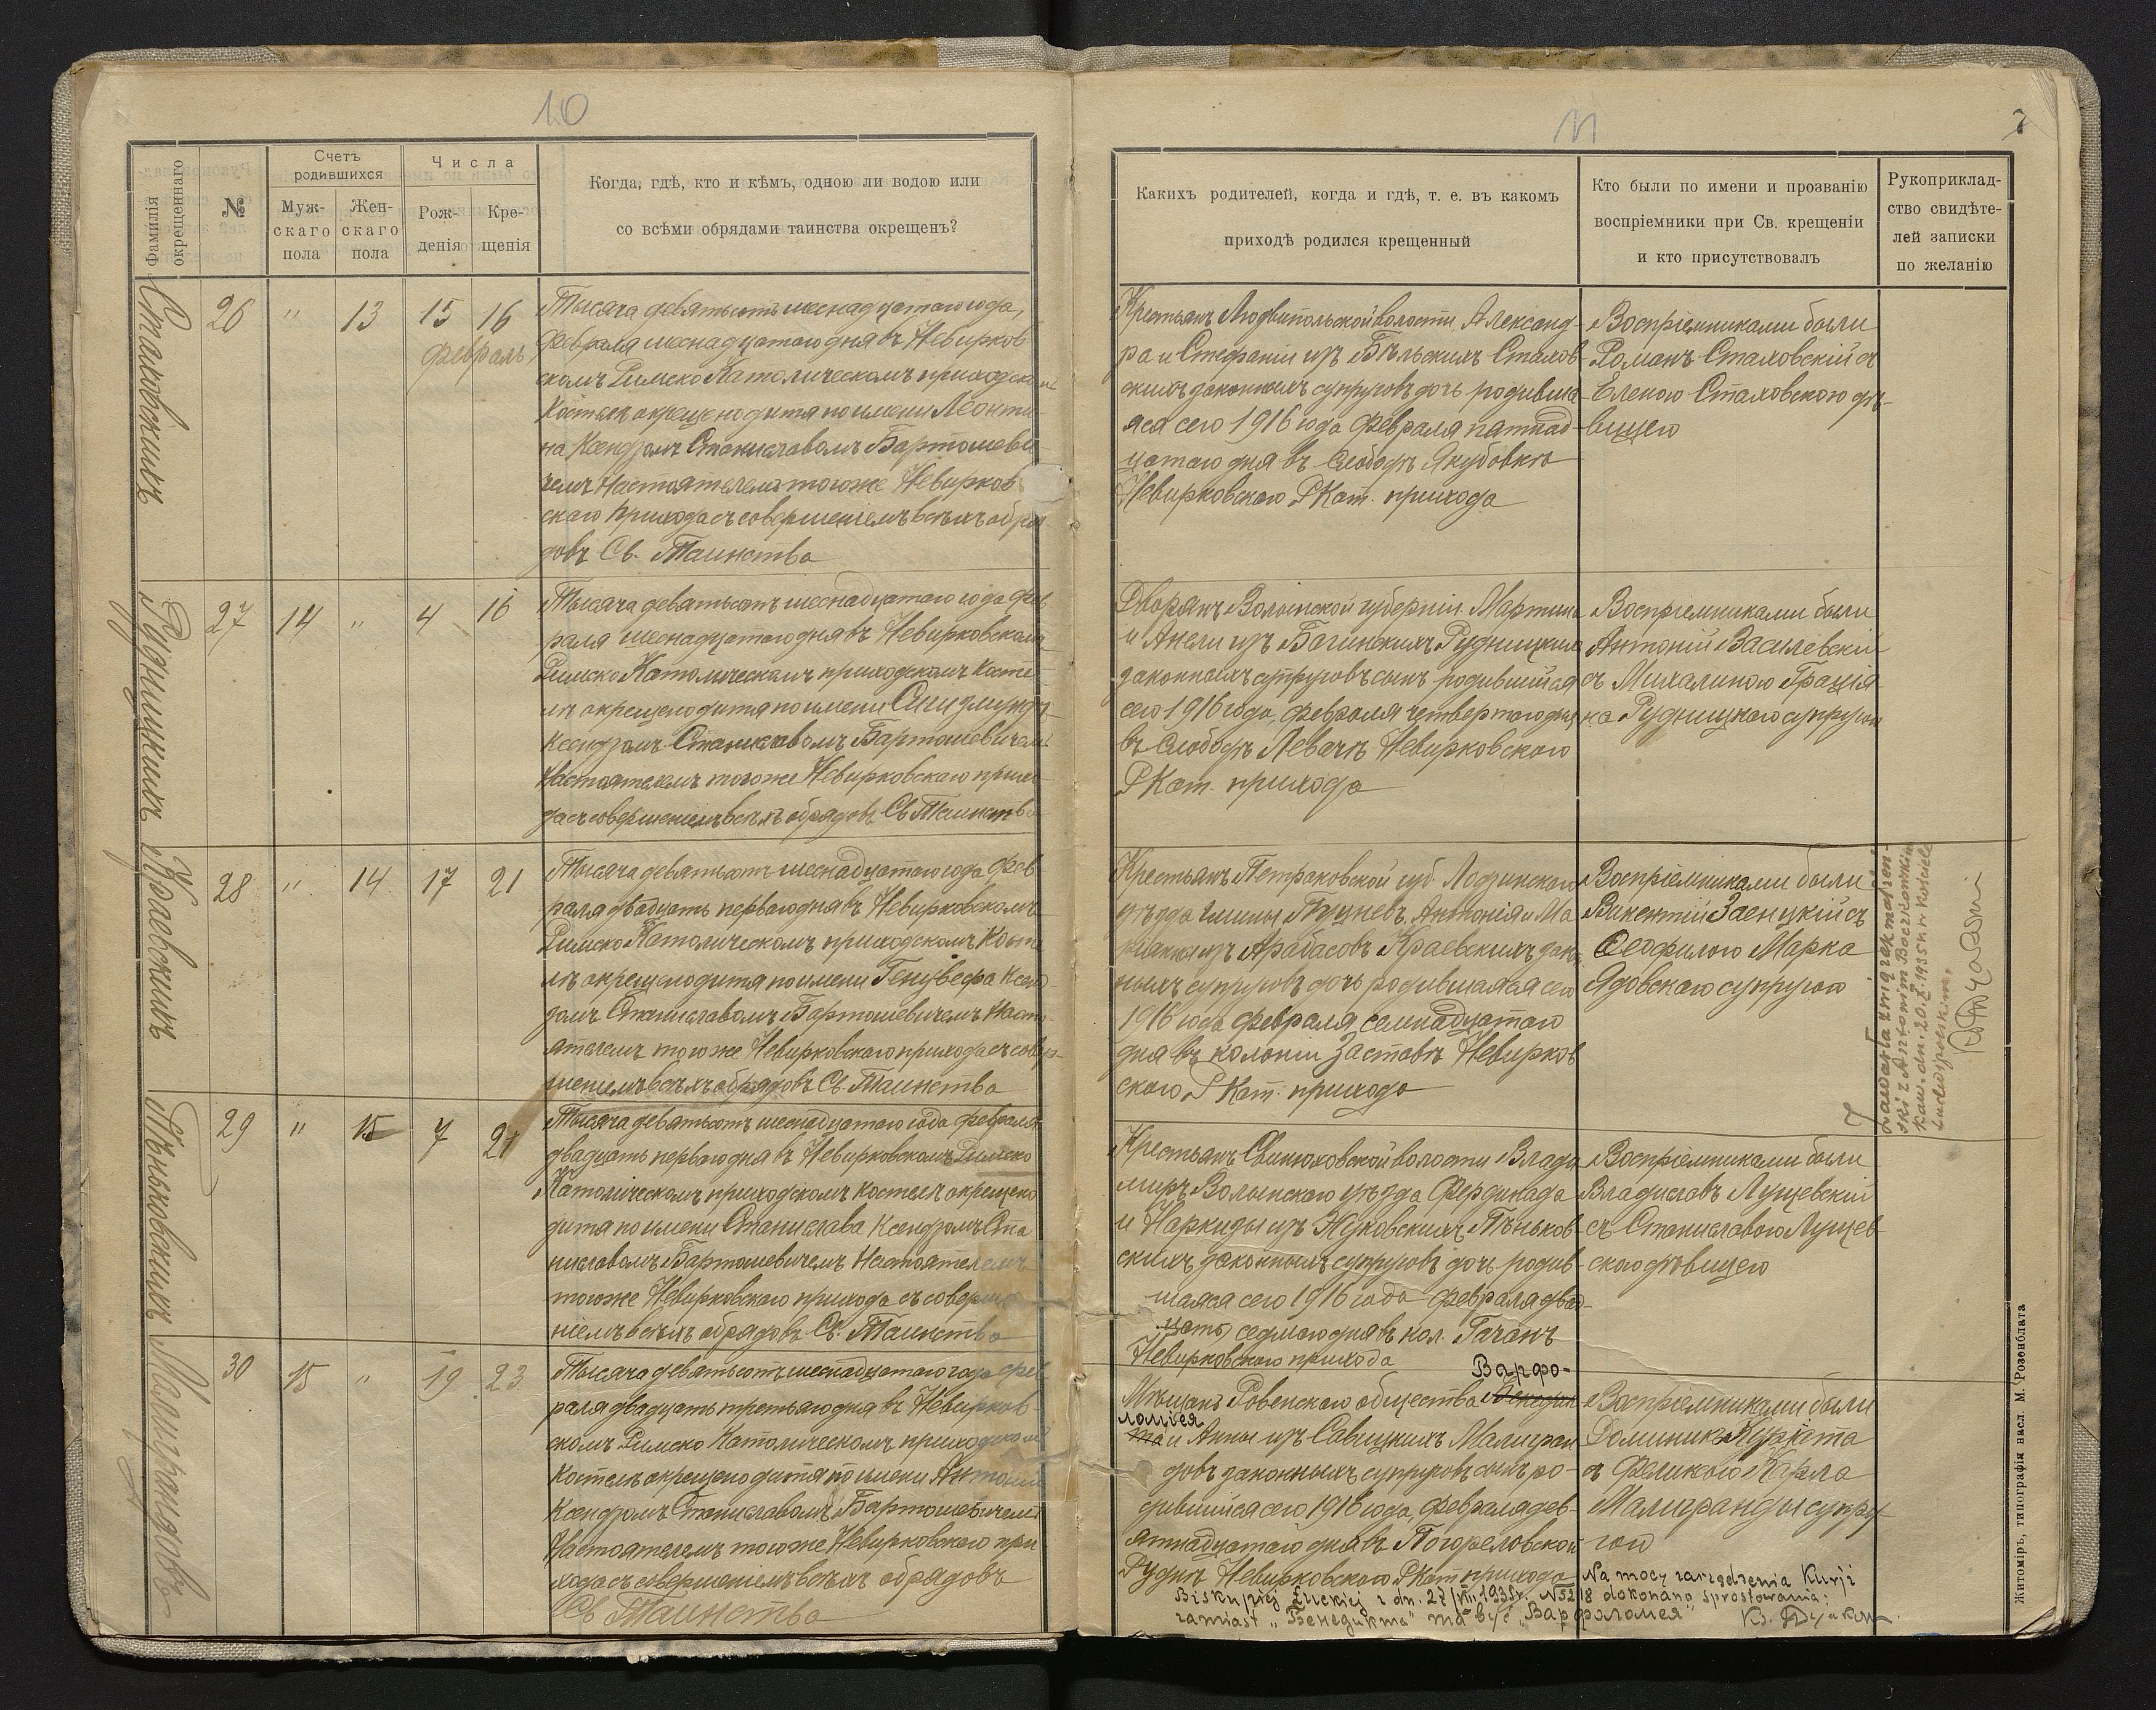 10
Фамилія окрещеннаго
№
Счетъ родившихся
Муж-скаго пола
Жен-скаго пола
Числа
Рож-денія
Кре-щенія
Когда, гдѣ, кто и кѣмъ, одною ли водою или
со всѣми обрядами таинства окрещенъ?
Стаховскихъ
26
"
13
15
16
Февраль
Тысяча девятьсотъ шеснадцатаго года,
Февраля шеснадцатаго дня въ Невирков
скомъ Римско Католическомъ приходском
Костелѣ окрещено дитя по имени Леонти
на Ксендзомъ Станиславомъ Бартошеви
чемъ Настоятелемъ тогоже Невирков
скаго прихода съ совершеніемъ всѣхъ обря
довъ Св. Таинства
Рудницкихъ
27
14
"
4
16
Тысяча девятьсотъ шеснадцатаго года фев
раля шеснадцатаго дня въ Невирковскомъ
Римско Католическомъ приходскомъ Косте
лѣ окрещено дитя по имени Сигизмундъ
Ксендзомъ Станиславомъ Бартошевичемъ
Настоятелемъ тогоже Невирковскаго прихо
да съ совершеніемъ всѣхъ обрядовъ Св Таинства
Краевскихъ
28
"
14
17
21
Тысяча девятьсотъ шеснадцатаго года фев
раля двадцать перваго дня въ Невирковскомъ
Римско Католическомъ приходскомъ Косте
лѣ окрещено дитя по имени Генувефа Ксенд
зомъ Станиславомъ Бартошевичемъ Насто
ятелемъ тогоже Невирковскаго прихода съ совер-
шеніемъ всѣхъ обрядовъ Св. Таинства
Пѣньковскихъ
29
"
15
7
21
Тысяча девятьсотъ шеснадцатаго года февраля
двадцать перваго дня въ Невирковскомъ Римско
Католическомъ приходскомъ костелѣ окрещено
дитя по имени Станислава Ксендзомъ Ста
ниславомъ Бартошевичемъ Настоятелемъ
тогоже Невирковскаго прихода съ соверше
ніемъ всѣхъ обрядовъ Св. Таинства
Малиграндовъ
30
15
"
19
23
Тысяча девятьсотъ шеснадцатаго года фев
раля двадцать третьяго дня въ Невирков-
скомъ Римско Католическомъ приходскомъ
Костелѣ окрещено дитя по имени Антоній
Ксендзомъ Станиславомъ Бартошевичемъ
Настоятелемъ тогоже Невирковскаго при
хода съ совершеніемъ всѣхъ обрядовъ
Св Таинства
11
7
Какихъ родителей, когда и гдѣ, т. е. въ какомъ
приходѣ родился крещенный
Кто были по имени и прозванію
воспріемники при Св. крещеніи
и кто присутствовалъ
Рукоприклад-
ство свидѣте-
лей записки
по желанію
Крестьянъ Людвипольской волости Александ-
ра и Стефаніи изъ Бѣльскихъ Стахов-
скихъ законныхъ супруговъ дочь родивша-
яся сего 1916 года февраля пятнад-
цатаго дня въ слободѣ Якубовкѣ
Невирковскаго РКат. прихода
Воспріемниками были
Романъ Стаховскій съ
Еленою Стаховскою дѣ-
вицею
Дворянъ Волынской губерніи Мартина
и Анели изъ Багинскихъ Рудницкихъ
законныхъ супруговъ сынъ родившійся
сего 1916 года, февраля четвертаго дня
въ слободѣ Левачѣ Невирковскаго
РКат. прихода
Воспріемниками были
Антоній Василевскій
съ Михалиною Грація
на Рудницкаго супругою
Крестьянъ Петраковской губ. Лодзинскаго
уѣзда гмины Пузневъ, Антонія и Ма
ріанны изъ Арабасовъ Краевскихъ закон
ныхъ супруговъ дочь родившаяся сего
1916 года февраля семнадцатаго
дня въ колоніи Заставѣ Невирков
скаго РКат. прихода
Воспріемниками были
Викентій Заенцкій съ
Ѳеофилою Марка
Ядовскаго супругою
Zawarła związek małżeń-
ski z Antonim Boczkowskim
Kaw. dn. 20.I.1935 r. w kościele
Ludwipolskim,
Крестьянъ Свинюховской волости Влади
миръ Волынскаго уѣзда Фердинада
и Наркизы изъ Жуковскихъ Пѣньков-
скихъ законныхъ супруговъ дочь родив-
шаяся сего 1916 года февраля двад-
цать седмого дня въ кол. Гачанѣ
Невирковскаго прихода
Воспріемниками были
Владиславъ Лущевскій
съ Станиславою Лущев-
скаго дѣвицею
Варфо-
Мѣщанъ Ровенскаго общества Бенедик
ломѣя
та и Анны изъ Савицкихъ Малигран
довъ законныхъ супруговъ сынъ ро-
дившійся сего 1916 года, февраля дев-
ятнадцатаго дня въ Погореловской
Руднѣ Невирковскаго РКат прихода
Воспріемниками были
Доминикъ Курята
съ Феликсою Карла
Малигранды супру-
гою
Na mocy zarządzenia Kurji
Biskupiej Łuckiej z dn. 27/VII.1935r. №5218 dokonano sprostowania:
zamiast „Бенедикта" ma być „Варфоломея"
Житоміръ, типографія насл. М. Розенблата